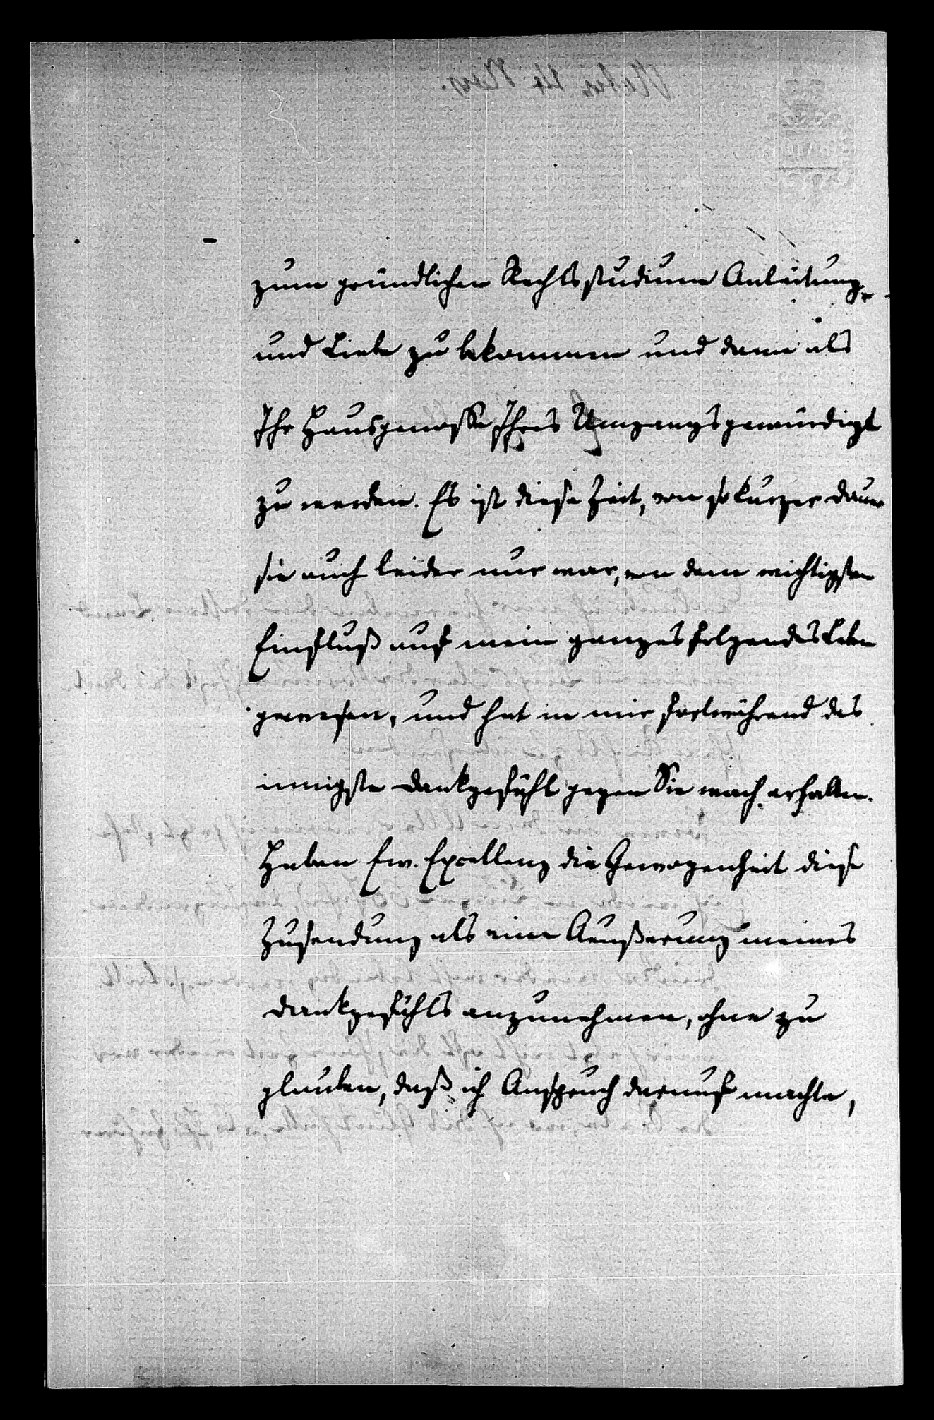 zum gründlichen Rechtsstudium Anleitung
und Liebe zu bekommen und dann als
Ihr Hausgenosse Ihres Umgangs gewürdigt
zu werden. Es ist diese Zeit, von so kurzer Dauer
sie auch leider nur war, von dem wichtigsten
Einfluß auf mein ganzes folgendes Leben
gewesen, und hat in mir fortwährend das
innigste Dankgefühl gegen Sie wach erhalten.
Haben Ew. Excellenz die Gewogenheit diese
Zusendung als eine Aeußerung meines
Dankgefühls anzunehmen, ohne zu
glauben, daß ich Anspruch darauf machte,